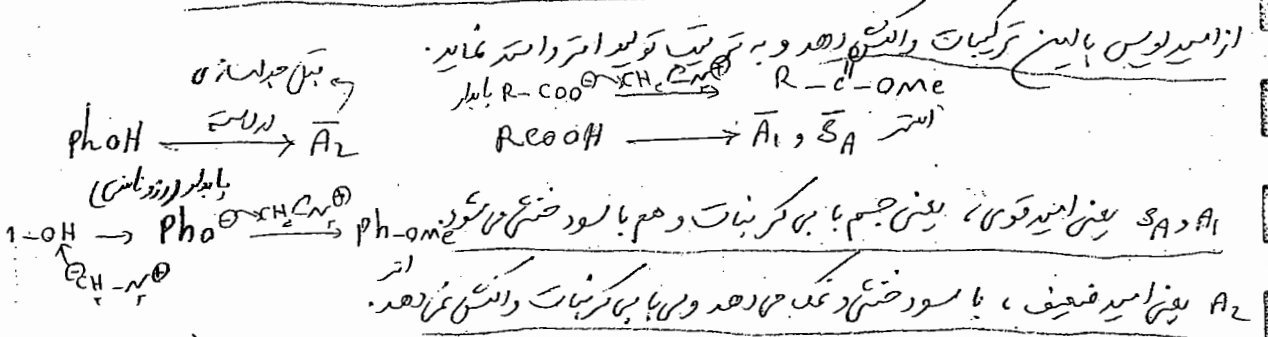 از اسید لویس با این ترکیبات واکنش دهد و به ترتیب تولید اتر و استر نماید.
پایدار R-COO⊖ CH₂N₂⊕ → R-C(=O)-OMe
استر
قبل جداسازی
PhOH → A₂
RCOOH → A₁ و SA
پایدار (رزونانس)
-OH → PhO⊖ CH₂N₂⊕ → Ph-OMe
⊖CH₂-N₂⊕
اتر
A₁ و SA یعنی اسید قوی، یعنی جسم با بی کربنات و هم با سود خنثی می شود.
A₂ یعنی اسید ضعیف، با سود خنثی و نمک می دهد ولی با بی کربنات واکنش نمی دهد.